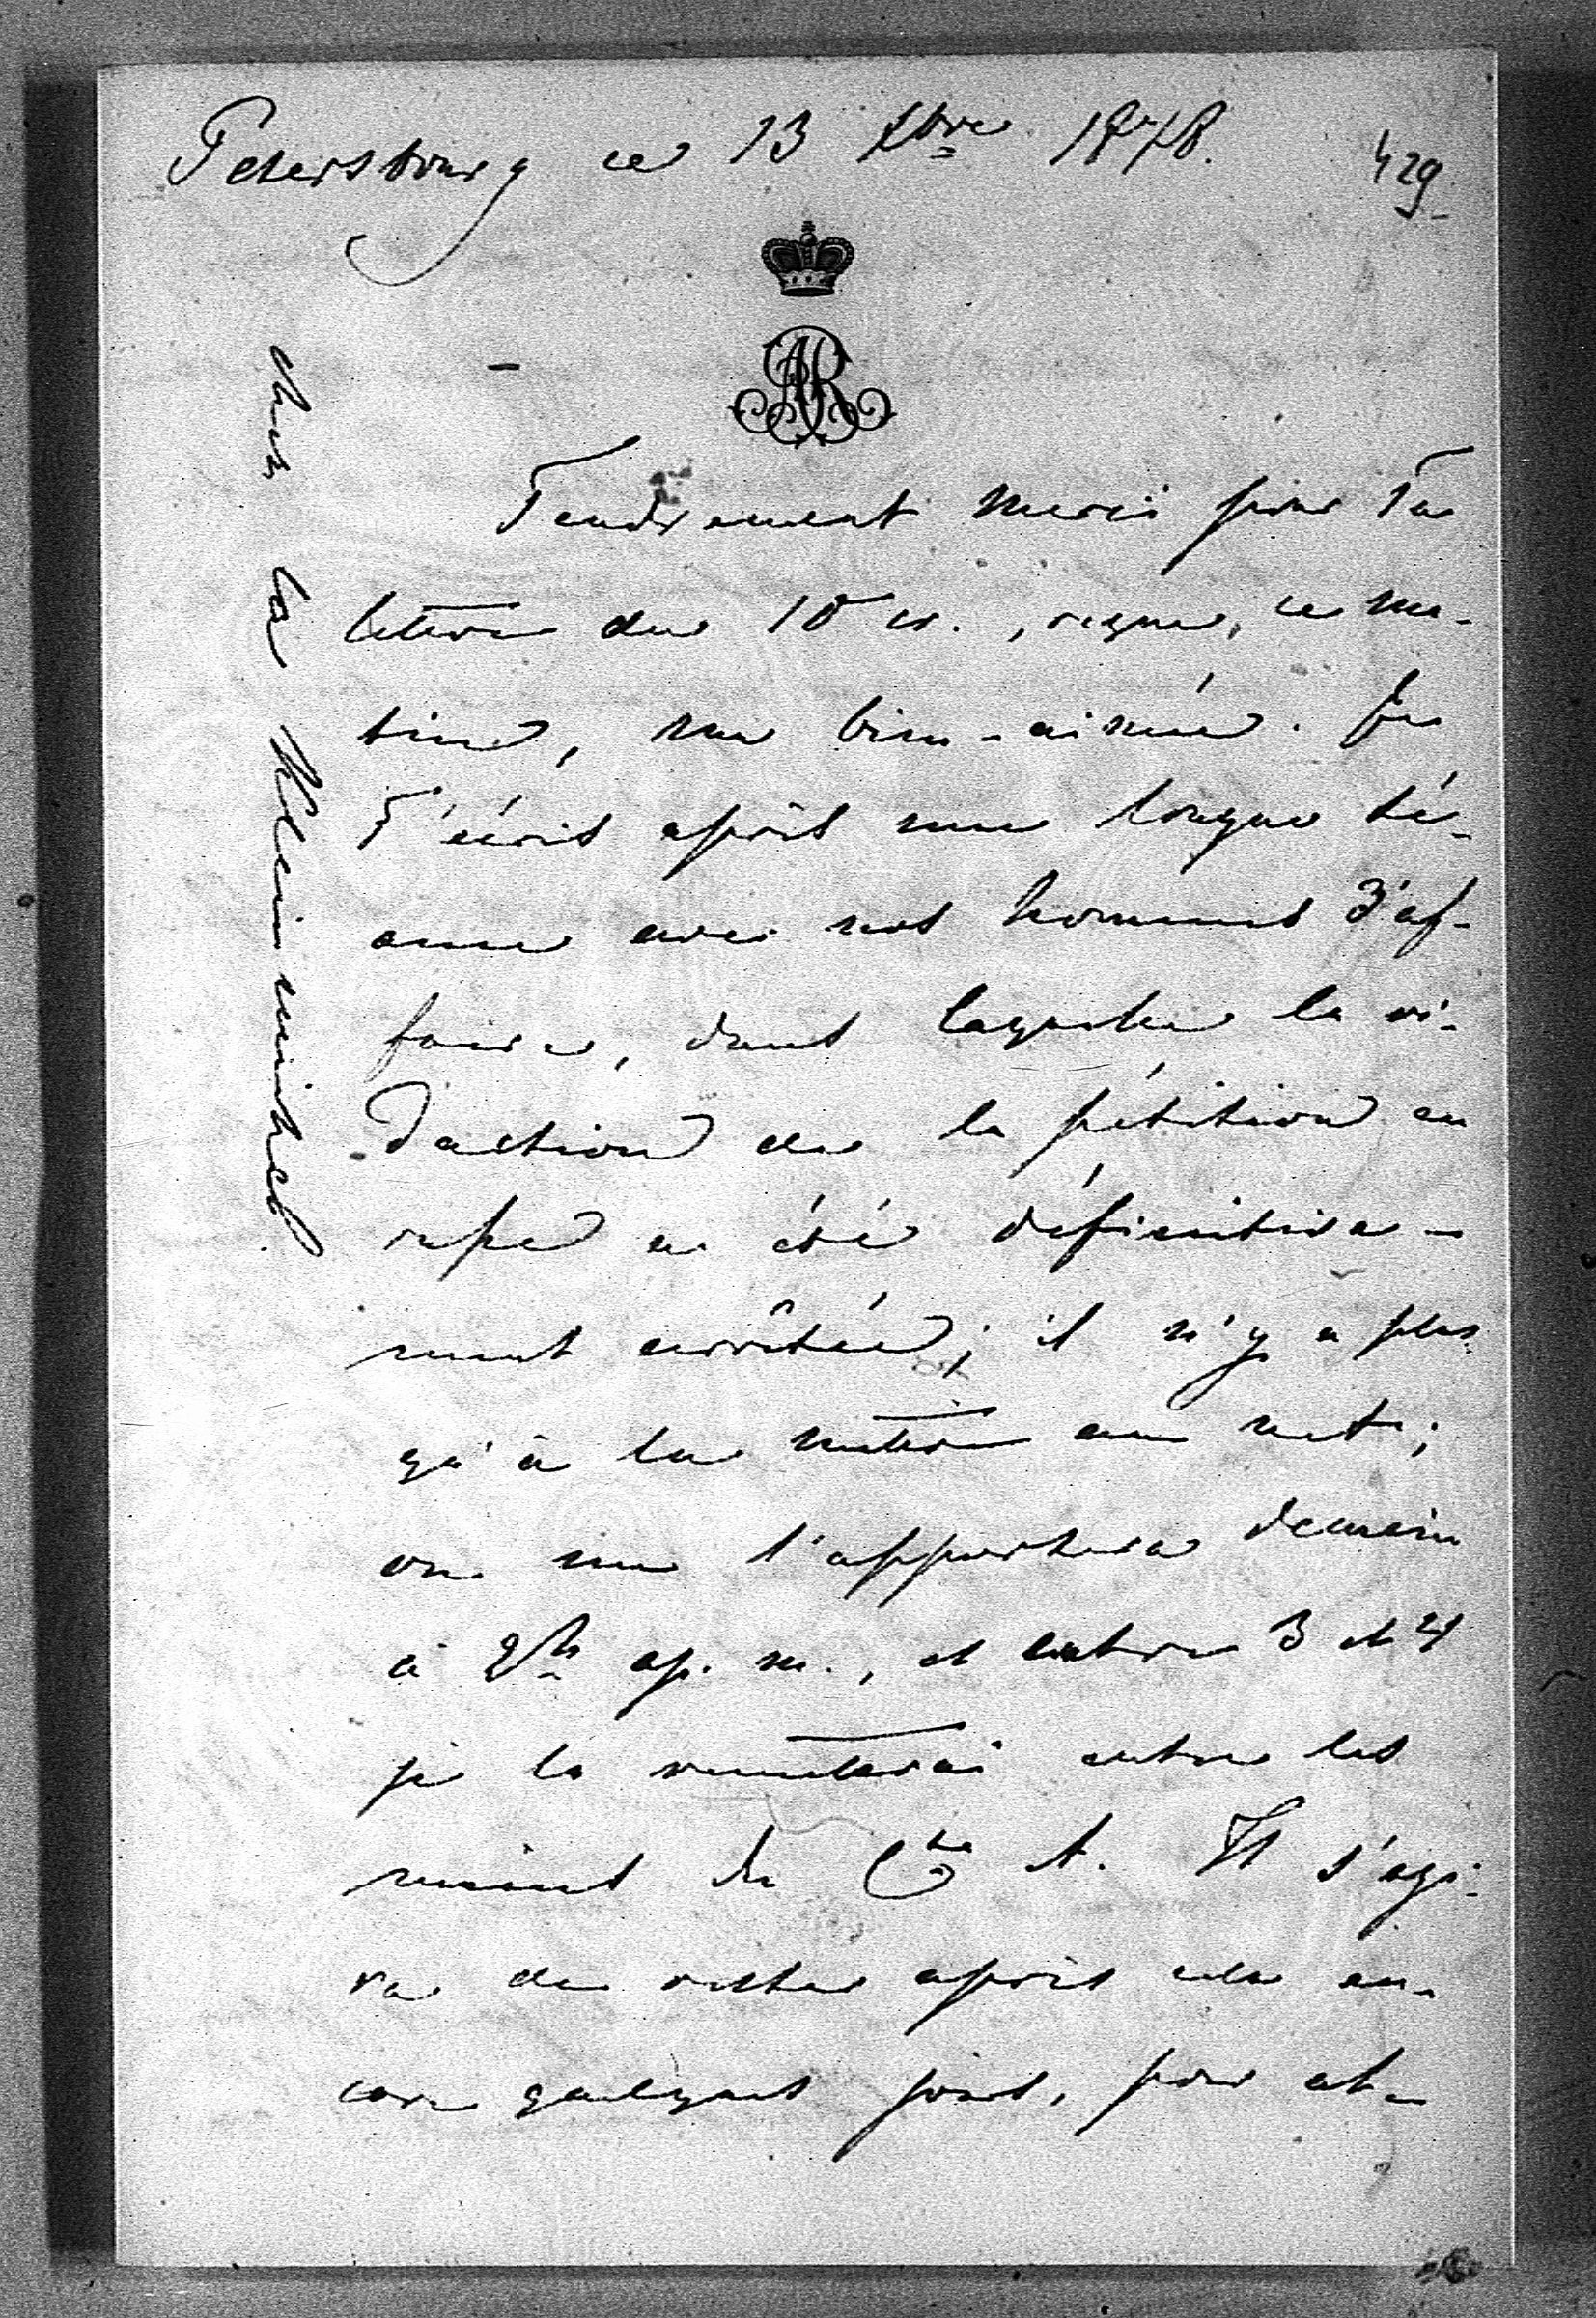 Petersbourg ce 13 Xbre 1878.
429
AR
Tendrement merci pour Ta
lettre du 10 cr., reçue, ce ma-
tin, ma bien-aimée. Je
T'écris après une longue sé-
ance avec nos hommes d'af-
faire, dans laquelle la ré-
daction de la pétition en
russe a été définitive-
ment arrêtée; il n'y a plus
qu'à la mettre au net;
on me l'apportera demain
à 2h ap. m., et entre 3 et 4
je la remetterai entre les
mains du Cte A. Il s'agi-
ra de rester après cela en-
core quelques jours, pour at-
chez la Kleinmichel.